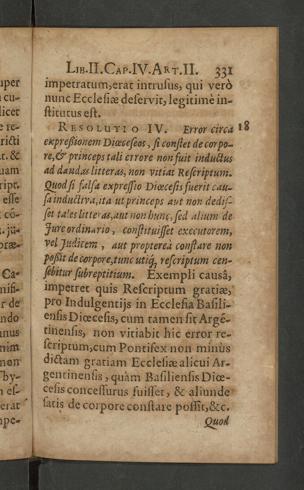 LIB.II.CAP.IV.ART.II. 331
uper
impetratum,erat intrusus, qui verò
nunc Ecclesiæ deservit, legitimè in-
licet
stitutus est.
RESOLUTIO IV. Error circa 18
expressionem Diœceseos, si constet de corpo-
re,& princeps tali errore non fuit inductus
ad dandas litteras, non vitiat Rescriptum.
Quod si falsa expressio Diœcesis fuerit cau-
esse
sa inductiva, ita ut princeps aut non dedis-
set tales litteras,aut non hunc, sed alium de
Jure ordinario, constituisset executorem,
vel Juditem, aut propterea constare non
possit de corpore, tunc utiq, rescriptum cen-
sebitur subreptitium. Exempli causâ,
Ca-
impetret quis Rescriptum gratiæ,
pro Indulgentijs in Ecclesia Basili-
r de
ensis Diœcesis, cum tamen sit Argē-
ndo
tinensis, non vitiabit hic error re-
nus
scriptum,cum Pontifex non minùs
nim
dictam gratiam Ecclesiæ alicui Ar-
non
gentinensis, quàm Basiliensis Diœ-
hy-
cesis concessurus fuisset, & aliunde
erat
satis de corpore constare possit,&c.
mpe-
Quod